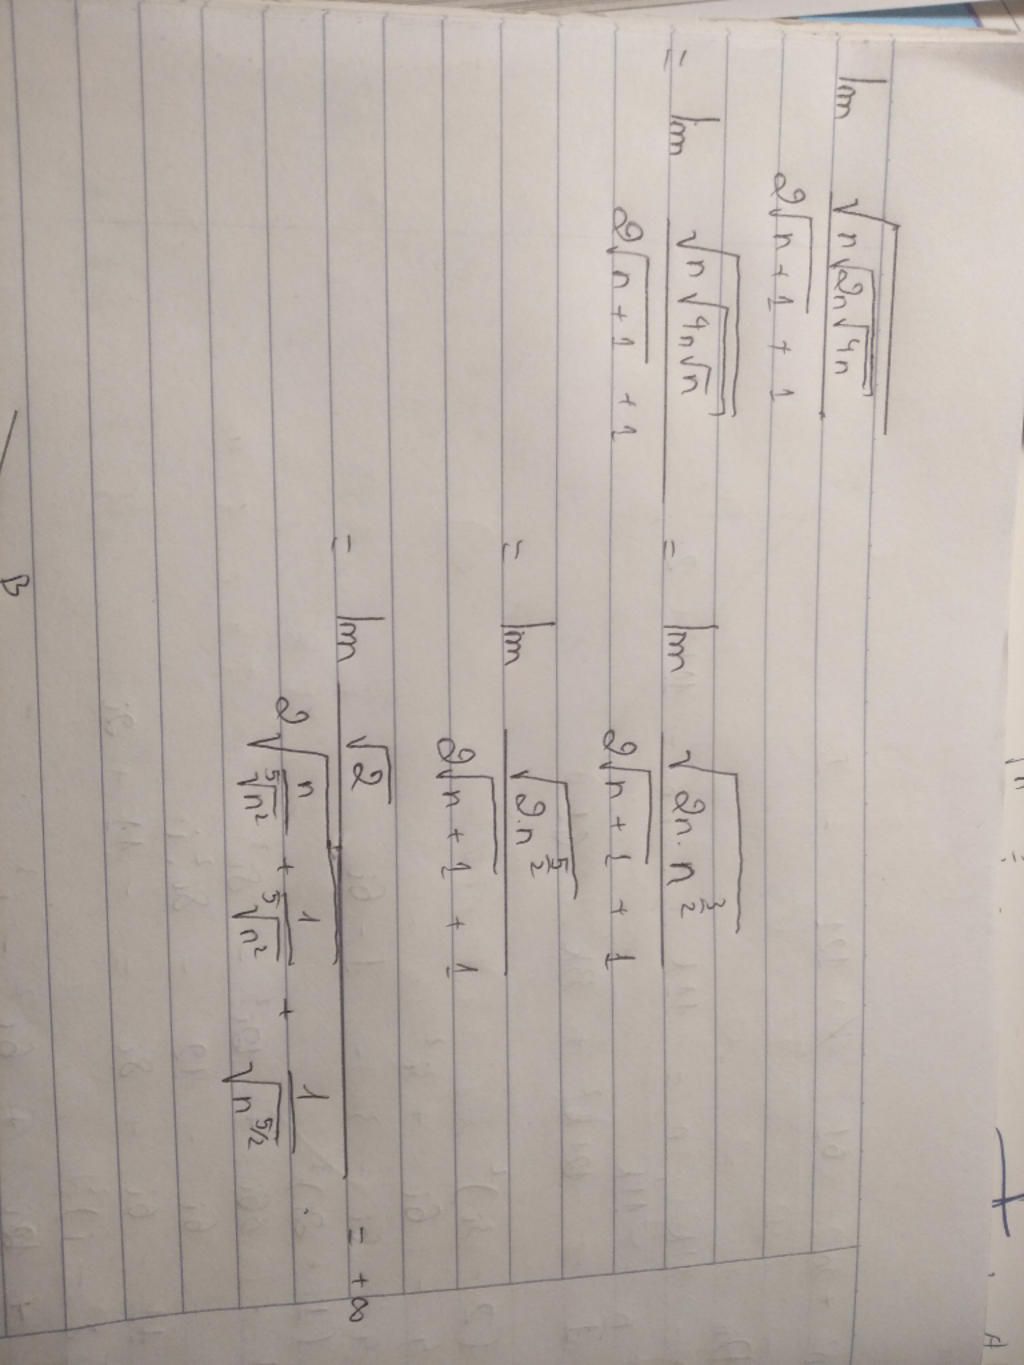 lim √(n√(2n√(4n))) / (2√(n+1) + 1)
= lim √(n√(4n√n)) / (2√(n+1) + 1) = lim √(2n·n^(3/2)) / (2√(n+1) + 1)
= lim √(2·n^(5/2)) / (2√(n+1) + 1)
= lim √2 / (2√(n/⁵√n² + 1/⁵√n²) + 1/√(n^(5/2))) = +∞
B